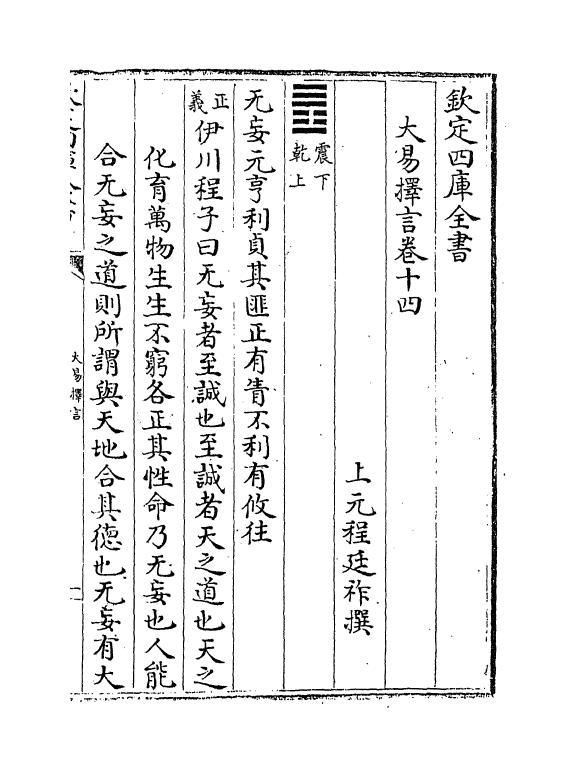 欽定四庫全書
大易擇言卷十四
上元程廷祚撰
震下
乾上
无妄元亨利貞其匪正有眚不利有攸往
正義
伊川程子曰无妄者至誠也至誠者天之道也天之
化育萬物生生不窮各正其性命乃无妄也人能
合无妄之道則所謂與天地合其德也无妄有大
大易擇言
一